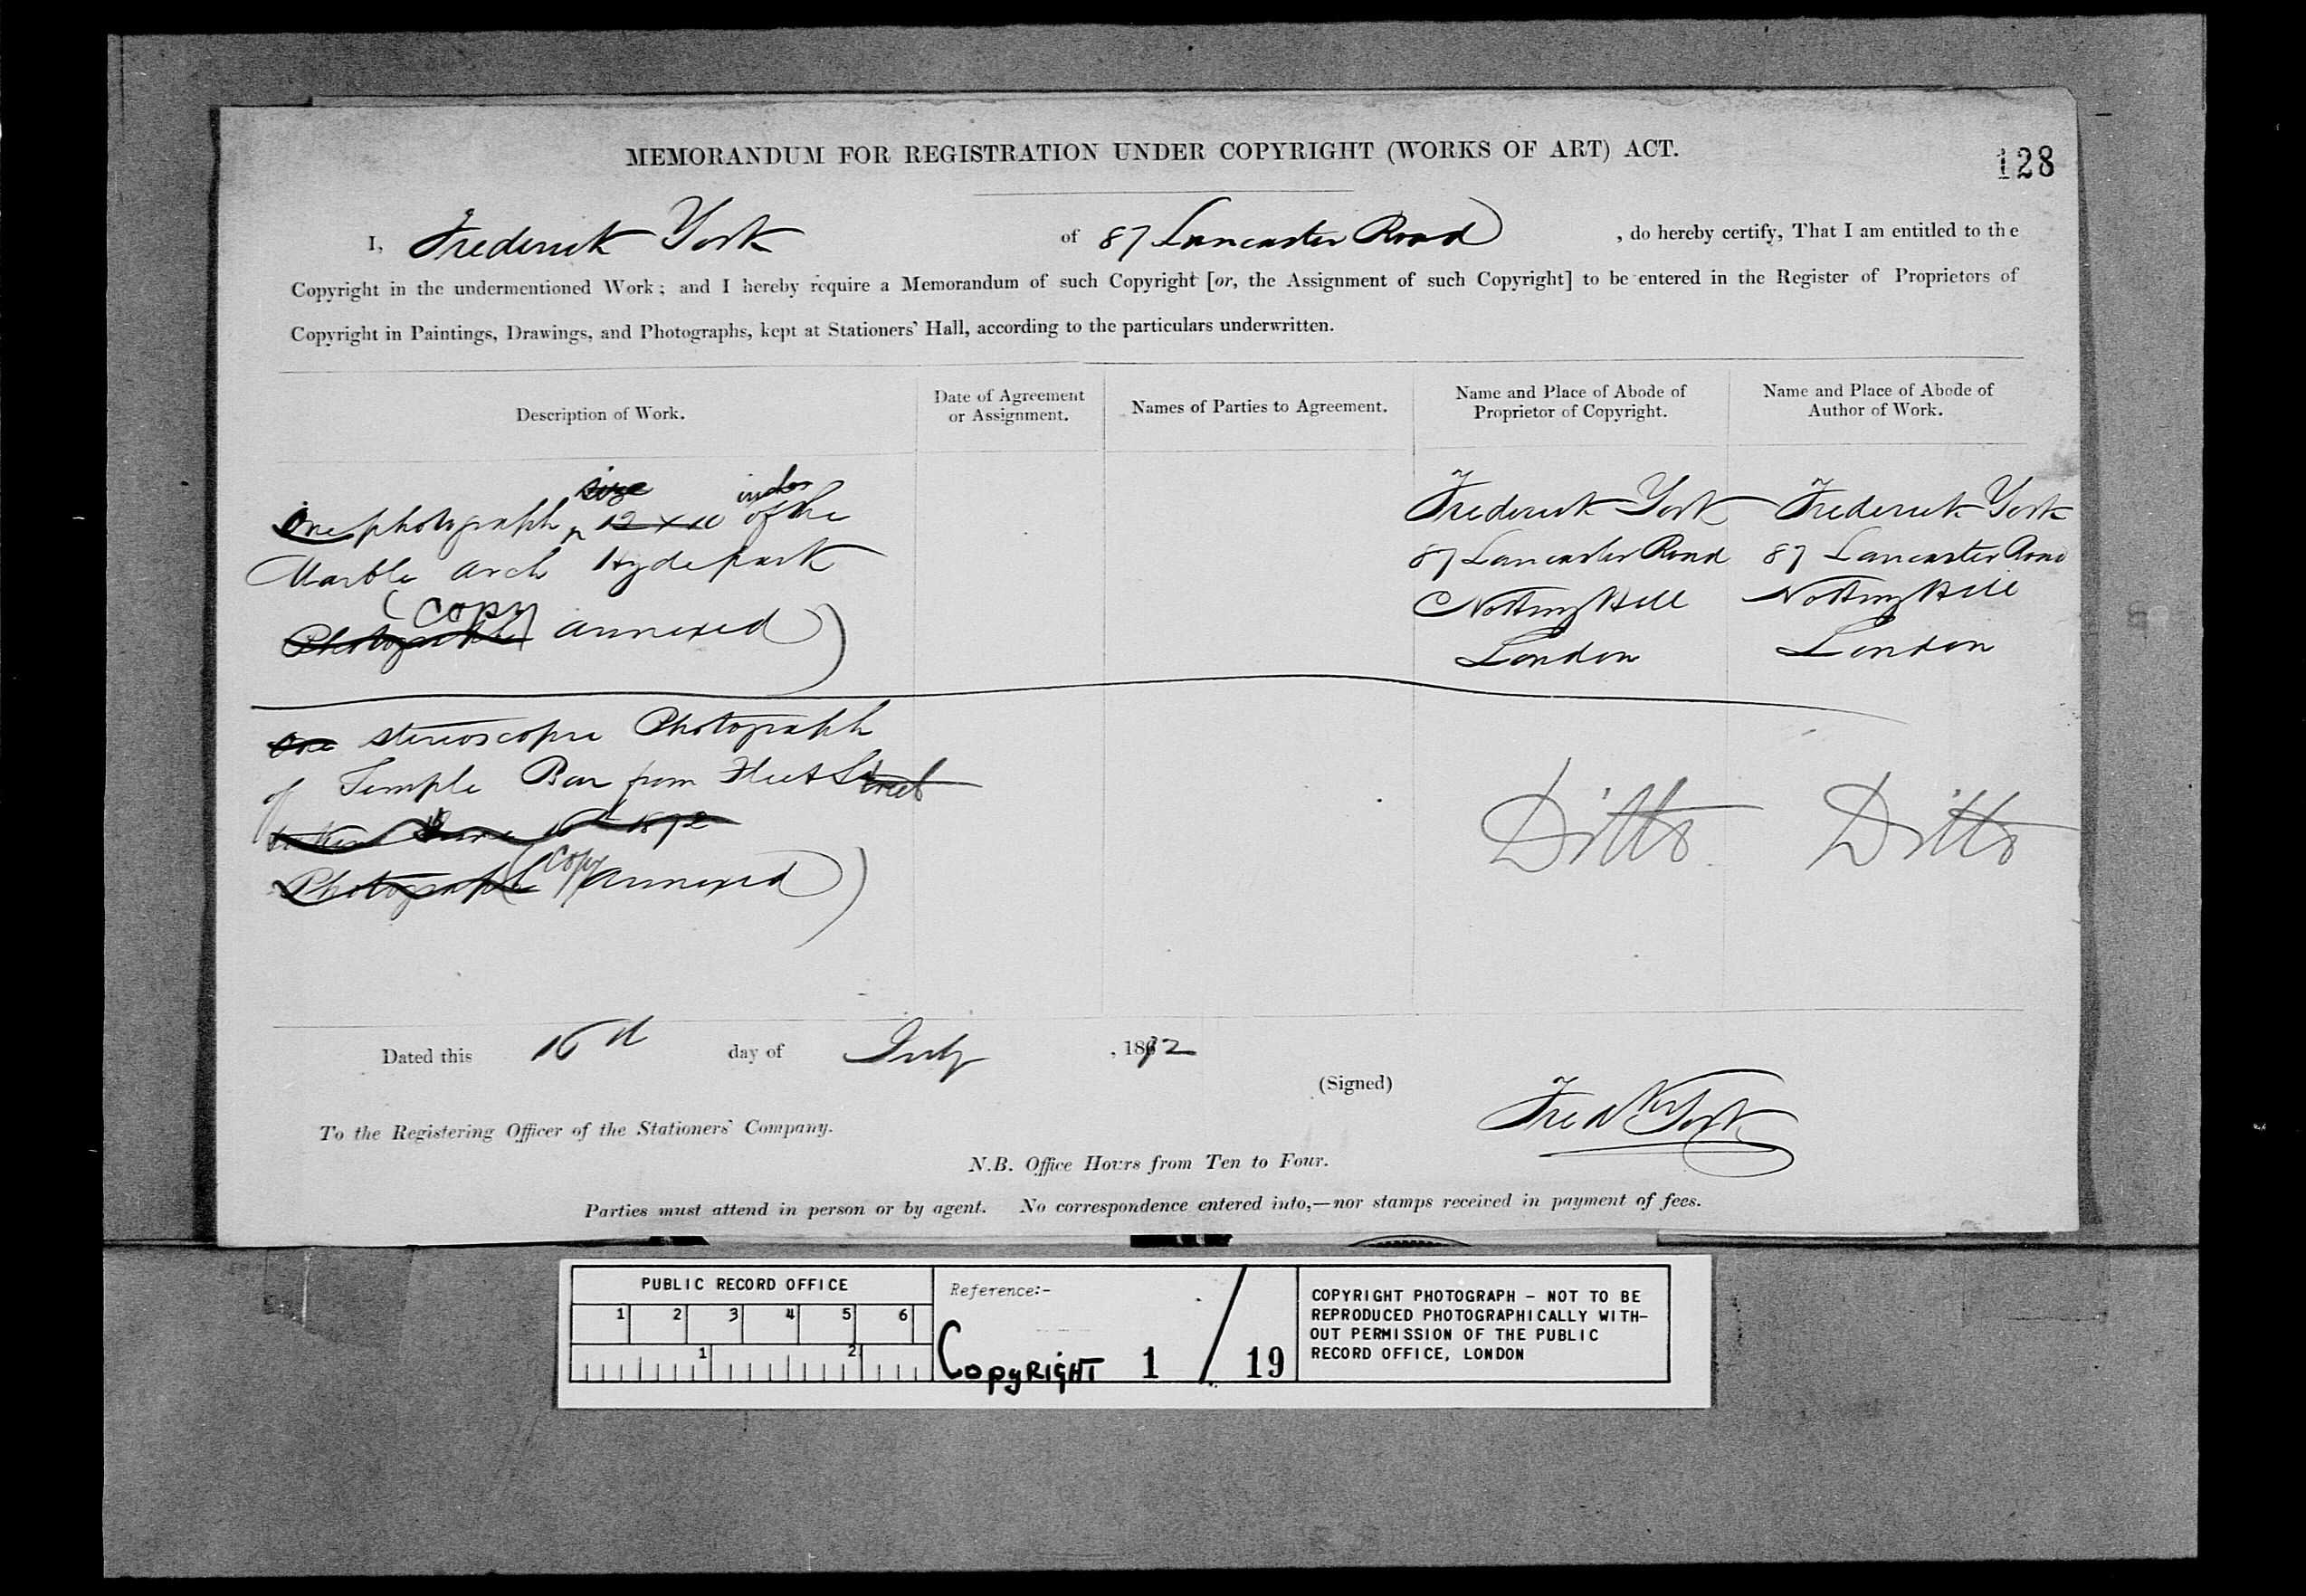 MEMORANDUM FOR REGISTRATION UNDER COPYRIGHT (WORKS OF ART) ACT.
128
I, Frederick York of 87 Lancaster Road , do hereby certify, That I am entitled to the
Copyright in the undermentioned Work; and I hereby require a Memorandum of such Copyright [or, the Assignment of such Copyright] to be entered in the Register of Proprietors of
Copyright in Paintings, Drawings, and Photographs, kept at Stationers' Hall, according to the particulars underwritten.
Description of Work.
Date of Agreement
or Assignment.
Names of Parties to Agreement.
Name and Place of Abode of
Proprietor of Copyright.
Name and Place of Abode of
Author of Work.
size inches
One photograph 12 x 10 of the
Marble Arch Hyde park
(Copy
Photograph annexed)
Frederick York
87 Lancaster Road
Notting Hill
London
Frederick York
87 Lancaster Road
Notting Hill
London
One stereoscopic Photograph
of Temple Bar from Fleet Street
taken June 1872
Photograph (Copy annexed)
Ditto
Ditto
Dated this 16th day of July , 1872
(Signed) Fredk York
To the Registering Officer of the Stationers' Company.
N.B. Office Hours from Ten to Four.
Parties must attend in person or by agent. No correspondence entered into,—nor stamps received in payment of fees.
PUBLIC RECORD OFFICE
1 2 3 4 5 6
1 2
Reference:-
COPYRIGHT 1 / 19
COPYRIGHT PHOTOGRAPH - NOT TO BE
REPRODUCED PHOTOGRAPHICALLY WITH-
OUT PERMISSION OF THE PUBLIC
RECORD OFFICE, LONDON